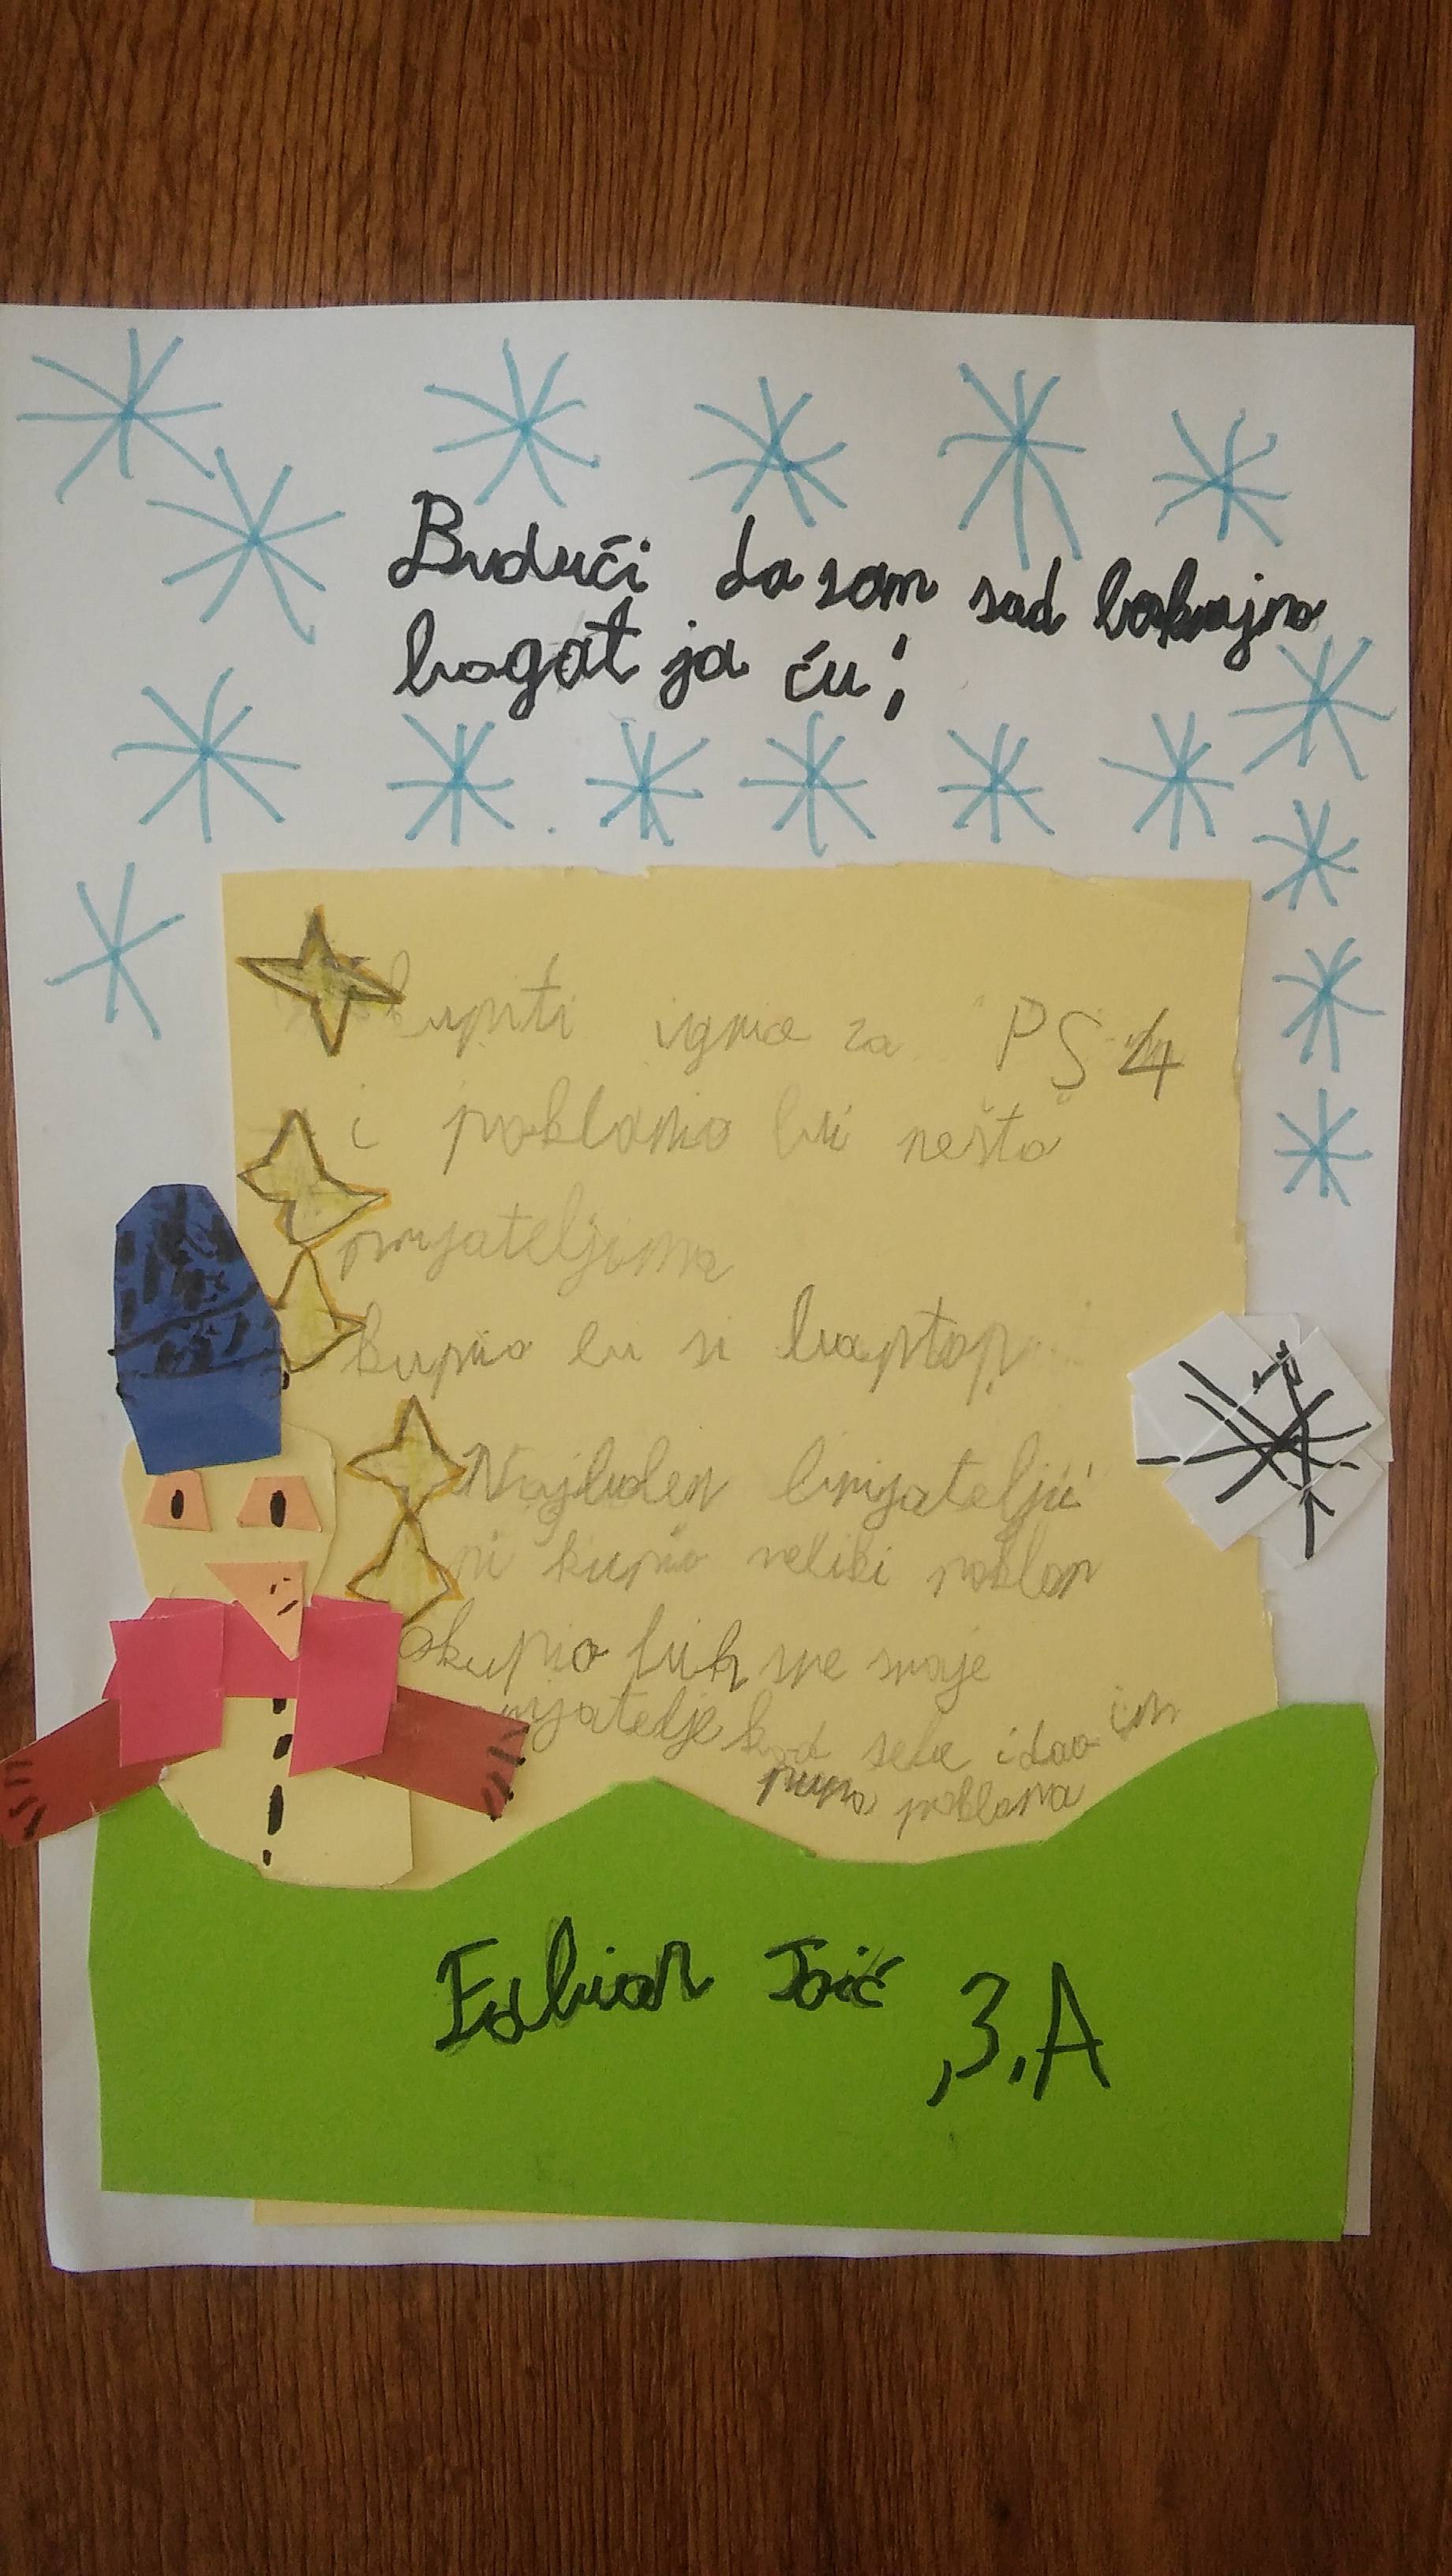 Budući da sam sad baknajno
bogat ja ću:
kupiti igrica za PS4
i poklonio bi nešto
prijateljima
kupio bi si laptop
Najboljen prijatelju
bi kupio veliki poklon
okupio bih sve svoje
prijatelje kod sebe i dao im
puno poklona
Fabian Joić ,3.A